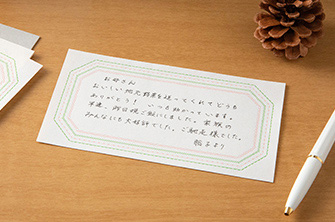 お母さん
おいしい地元野菜を送ってくれてどうも
ありがとう！ いつも助かっています。
早速、昨日晩ご飯にしました。家族の
みんなにも大好評でした。ご馳走様でした。